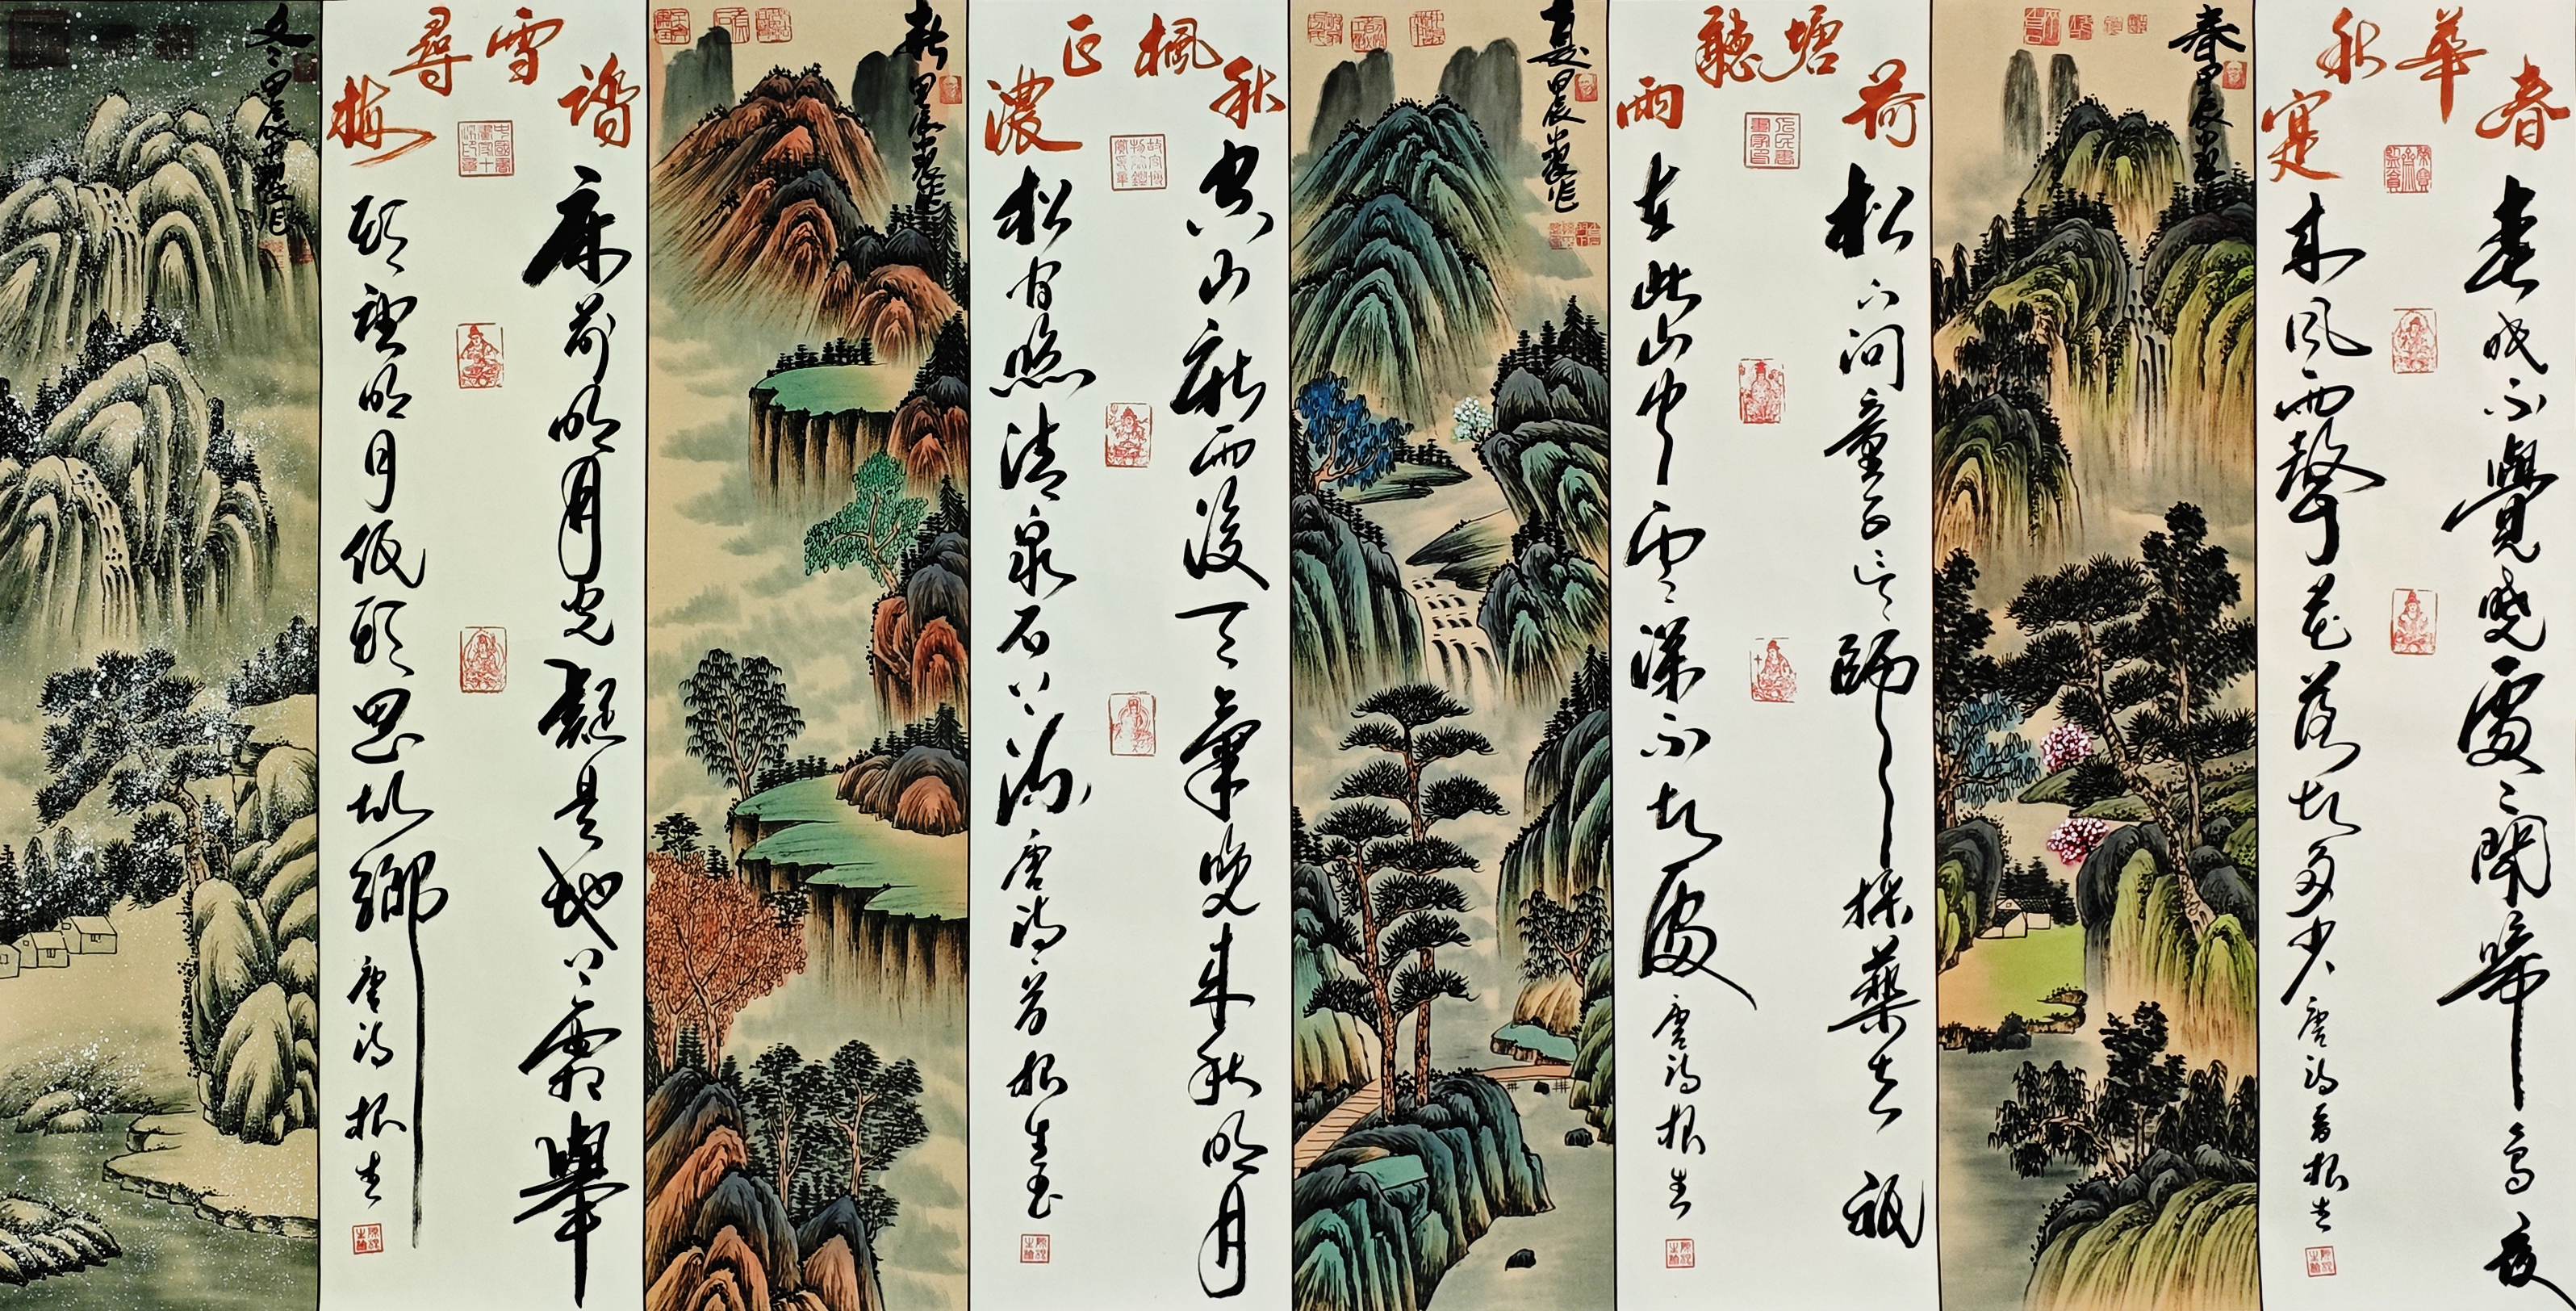 春華秋寔
春眠不覺曉處〻聞啼鳥夜
來風雨聲花落知多少 唐詩一首根生
春甲辰
荷塘聽雨
松下問童子言師採藥去祇
在此山中雲深不知處 唐詩根生
夏甲辰
秋楓正濃
空山新雨後天氣晚來秋明月
松間照清泉石上流 唐詩一首根生書
秋甲辰
踏雪尋梅
床前明月光疑是地上霜舉
頭望明月低頭思故鄉 唐詩根生
冬甲辰